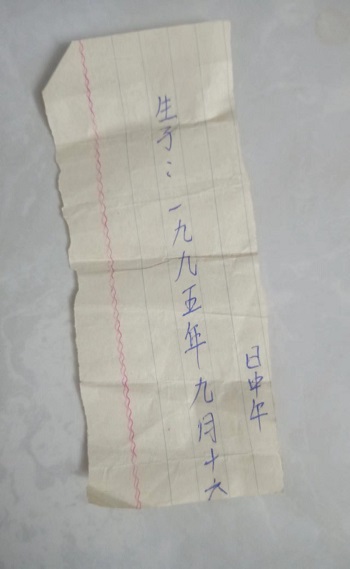 生于：一九九五年九月十六
日中午